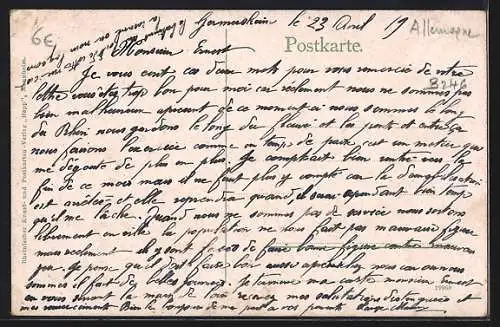 6E
Allemagne
B246
Germersheim le 23 Avril 19
Postkarte.
Monsieur Ernest
Je vous ecrit ces deux mots pour vous remercie de votre
lettre vous etez trop bon pour moi car reelement nous ne sommes pas
bien malheureux apresent de ce moment ci nous sommes le long
du Rhin nous gardons le long du fleuve et les ponts et entre ça
nous faisons l'exercice comme en temps de paix, c'est un metier qui
me dégoute de plus en plus. Je comptait bien rentré vers la
fin de ce mois mais il ne faut plus y compté car la démobilisation
est arrêtée et elle reprendra quand, il sera cependant bien temps
qu'il me lâche. Quand nous ne sommes pas de service nous sortons
librement en ville la population ne nous fait pas mauvaise figure
mais reelement il y sont forcés de faire bonne figure contre mauvais
jeu. Je pense qu'il doit faire bon aussi apresent chez nous car ou nous
sommes il fait des belles journées. Je termine ma carte monsieur Ernest
en vous serrant la main de loin recevez mes salutations distinguées et
mes remerciements Bien le bonjour de ma part a vos parents
Rheinischer Kunst- und Postkarten-Verlag „Rapp", Mannheim.
19999